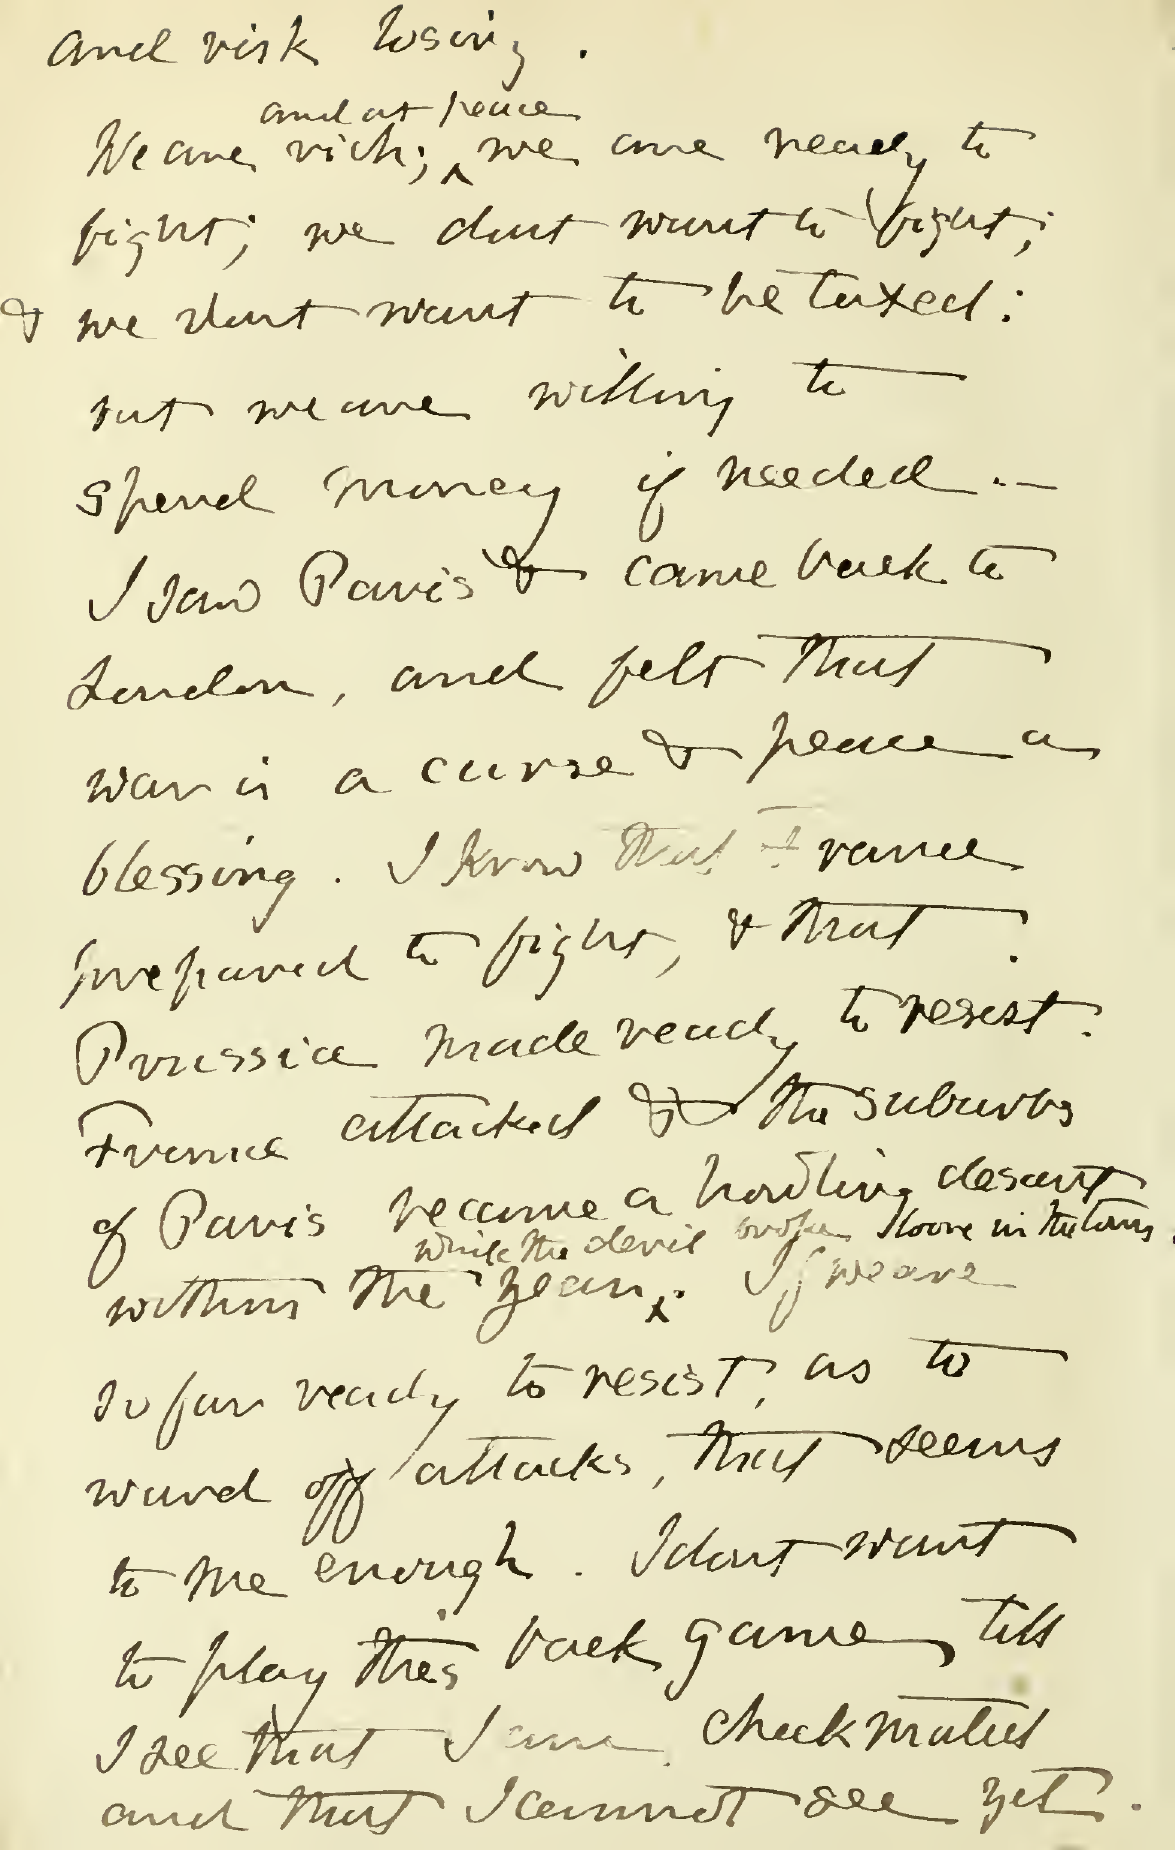 and risk losing.
and at peace
We are rich; ^ we are ready to
fight; we dont want to fight;
& we dont want to be taxed:
but we are willing to
spend money if needed.—
I saw Paris & came back to
London, and felt that
war is a curse & peace a
blessing. I know that France
prepared to fight, & that
Prussia made ready to resist.
France attacked & the suburbs
of Paris became a howling desart
while the devil broke loose in the town
within the year ^. If we are
so far ready to resist, as to
ward off attacks, that seems
to me enough. I dont want
to play this back game, till
I see that I am checkmated
and that I cannot see yet.